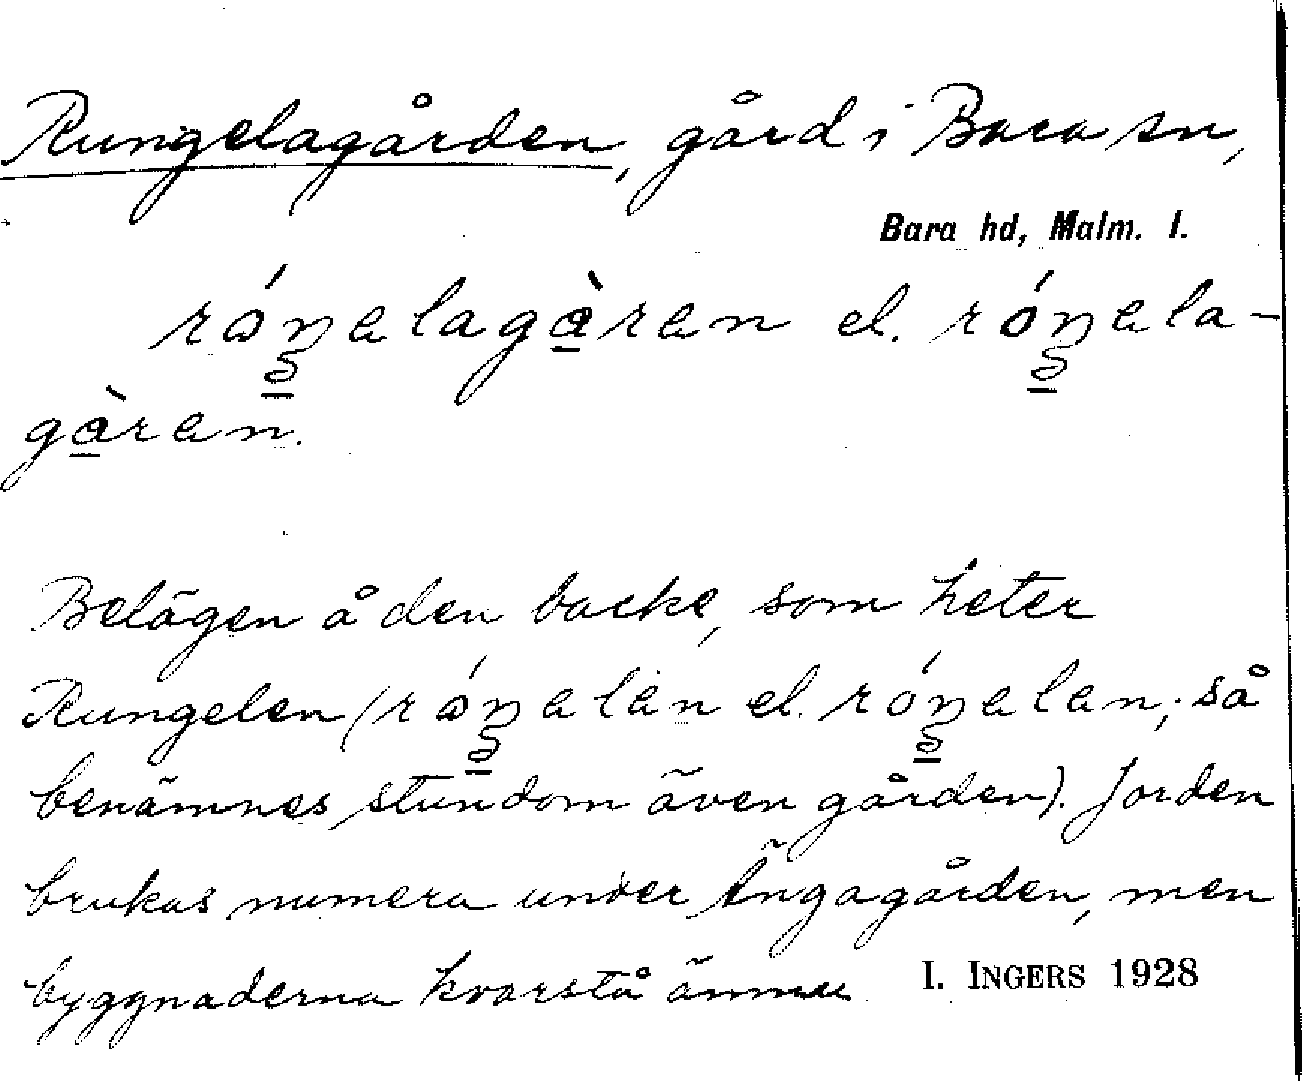 Rungelagården, gård i Bara sn,
Bara hd, Malm. l.
rón̠alagàran el. rón̠ala-
gàran.
Belägen å den backe, som heter
Rungelen (róŋalan el. róŋalan; så
benämnes stundom även gården). Jorden
brukas numera under Ängagården, men
byggnaderna kvarstå ännu
I. INGERS 1928